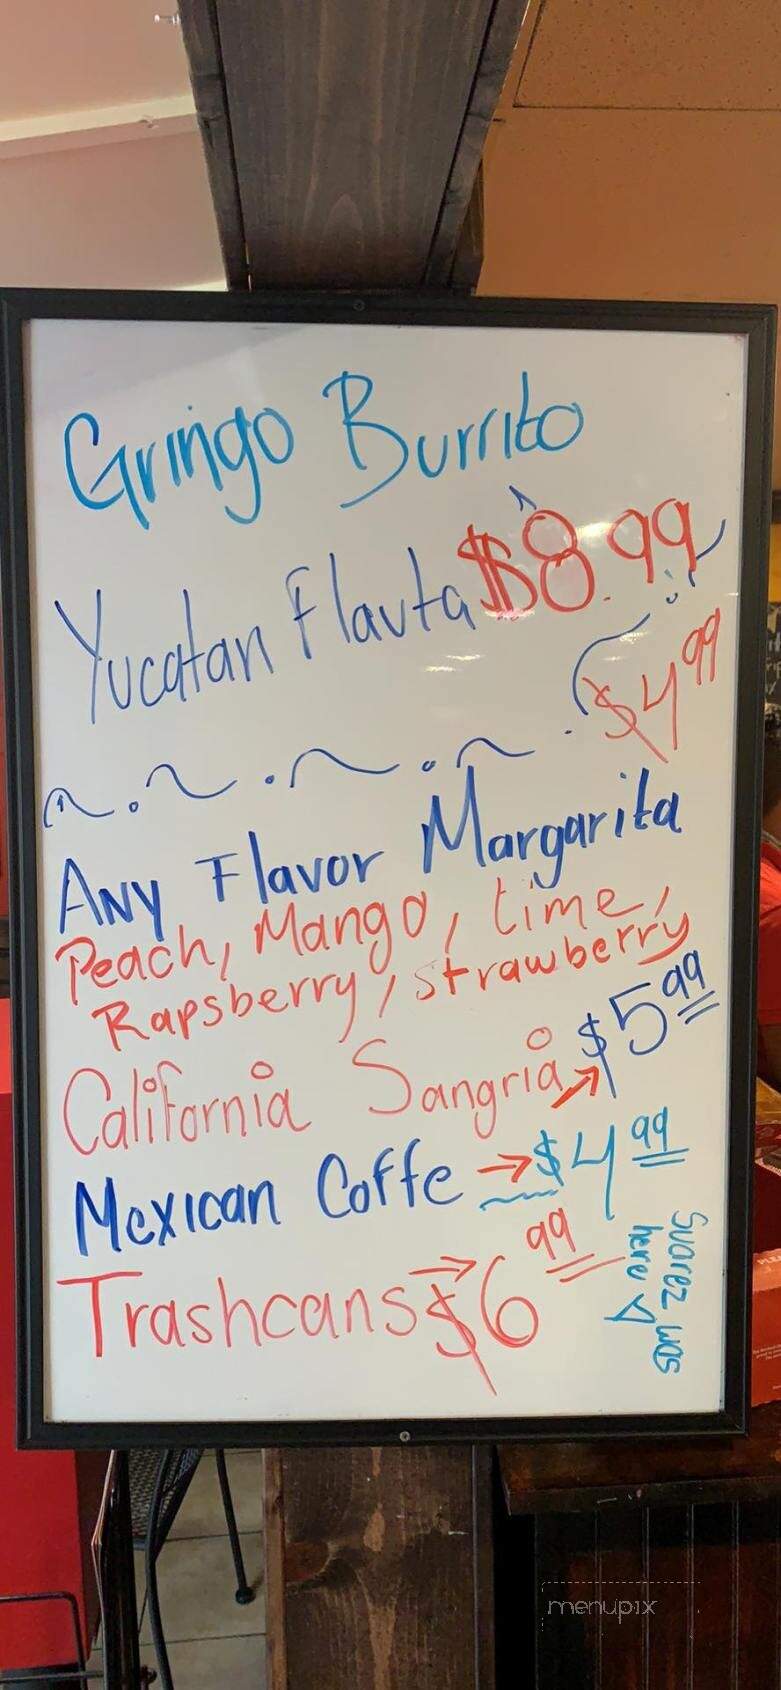 Gringo Burrito
Yucatan Flauta $8.99
$4.99
Any Flavor Margarita
Peach, Mango, Lime,
Rapsberry, Strawberry
California Sangria → $5.99
Mexican Coffe → $4.99
Trashcans → $6.99
Suarez was
here
menupix